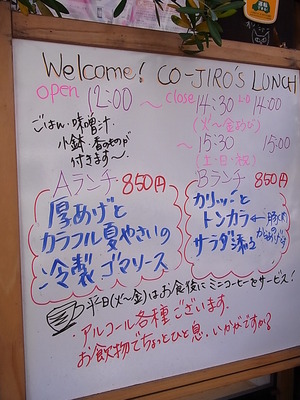 Welcome! CO-JIRO'S LUNCH
open 12:00 〜 close 14:30 L.O 14:00
(火〜金あび)
〜 15:30 15:00
(土・日・祝)
ごはん・味噌汁
小鉢・香のものが
付きます〜
Aランチ 850円
厚あげと
カラフル夏やさいの
冷製ゴマソース
Bランチ 850円
カリッーと
トンカラ←豚の
からあげ
サラダ添え
平日(火〜金)はお食後にミニコーヒーをサービス!
・アルコール各種ございます。
お飲物でちょっとひと息、いかがですか?